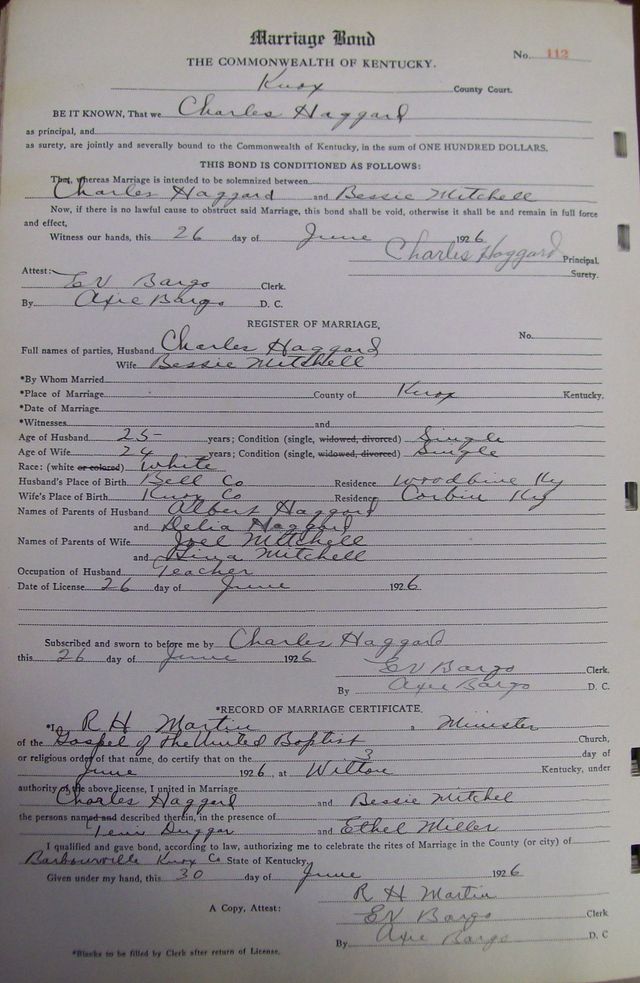 Marriage Bond
No. 112
THE COMMONWEALTH OF KENTUCKY.
Knox County Court.
BE IT KNOWN, That we Charles Haggard
as principal, and
as surety, are jointly and severally bound to the Commonwealth of Kentucky, in the sum of ONE HUNDRED DOLLARS.
THIS BOND IS CONDITIONED AS FOLLOWS:
That, whereas Marriage is intended to be solemnized between
Charles Haggard and Bessie Mitchell
Now, if there is no lawful cause to obstruct said Marriage, this bond shall be void, otherwise it shall be and remain in full force
and effect,
Witness our hands, this 26 day of June 1926
Charles Haggard Principal.
Surety.
Attest:
EV Bargo Clerk.
By Axie Bargo D. C.
REGISTER OF MARRIAGE,
No.
Full names of parties, Husband Charles Haggard
Wife Bessie Mitchell
*By Whom Married
*Place of Marriage County of Knox Kentucky.
*Date of Marriage
*Witnesses and
Age of Husband 25 years; Condition (single, widowed, divorced) Single
Age of Wife 24 years; Condition (single, widowed, divorced) Single
Race: (white or colored) White
Husband's Place of Birth Bell Co Residence Woodbine Ky
Wife's Place of Birth Knox Co Residence Corbin Ky
Names of Parents of Husband Albert Haggard
and Delia Haggard
Names of Parents of Wife Joel Mitchell
and Mitchell
Occupation of Husband Teacher
Date of License 26 day of June 1926
Subscribed and sworn to before me by Charles Haggard
this 26 day of June 1926
EV Bargo Clerk.
By Axie Bargo D. C.
*RECORD OF MARRIAGE CERTIFICATE.
*I, R H Martin, Minister
of the Gospel of the United Baptist Church,
or religious order of that name, do certify that on the 3 day of
June 1926, at Wilton Kentucky, under
authority of the above license, I united in Marriage
Charles Haggard and Bessie Mitchel
the persons named and described therein, in the presence of
Duggar and Ethel Miller
I qualified and gave bond, according to law, authorizing me to celebrate the rites of Marriage in the County (or city) of
Barbourville Knox Co State of Kentucky.
Given under my hand, this 30 day of June 1926
R H Martin
A Copy, Attest: EV Bargo Clerk
By Axie Bargo D. C
*Blanks to be filled by Clerk after return of License.